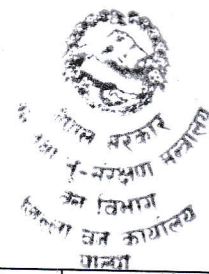 नेपाल सरकार
भू-संरक्षण मन्त्रालय
वन विभाग
जिल्ला वन कार्यालय
पाल्पा